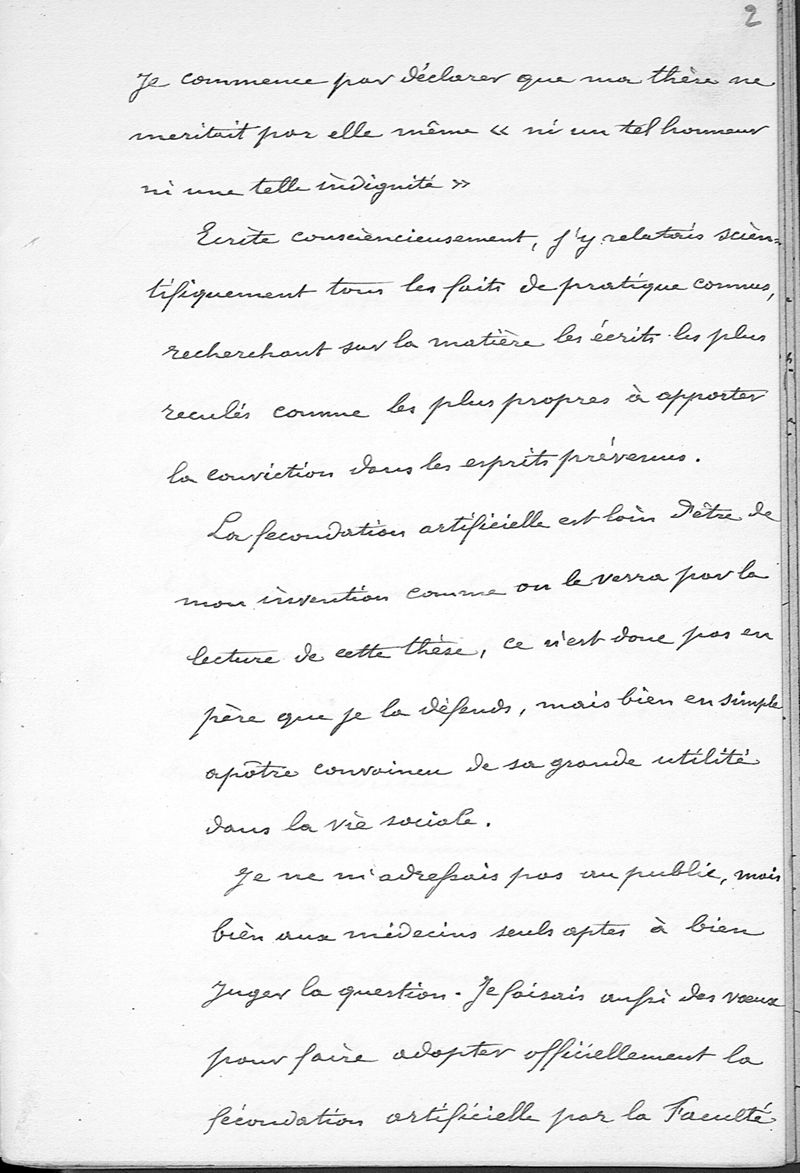 2
Je commence par déclarer que ma thèse ne
meritait par elle même « ni un tel honneur
ni une telle indignité »
Ecrite consciencieusement, j'y relatais scien=
tifiquement tous les faits de pratique connus,
recherchant sur la matière les écrits les plus
reculés comme les plus propres à apporter
la conviction dans les esprits prévenus.
La fecondation artificielle est loin d'être de
mon invention comme on le verra par la
lecture de cette thèse, ce n'est donc pas en
père que je la défends, mais bien en simple
apôtre convaincu de sa grande utilité
dans la vie sociale.
Je ne m'adressais pas au public, mais
bien aux médecins seuls aptes à bien
juger la question. Je faisais aussi des vœux
pour faire adopter officiellement la
fécondation artificielle par la Faculté